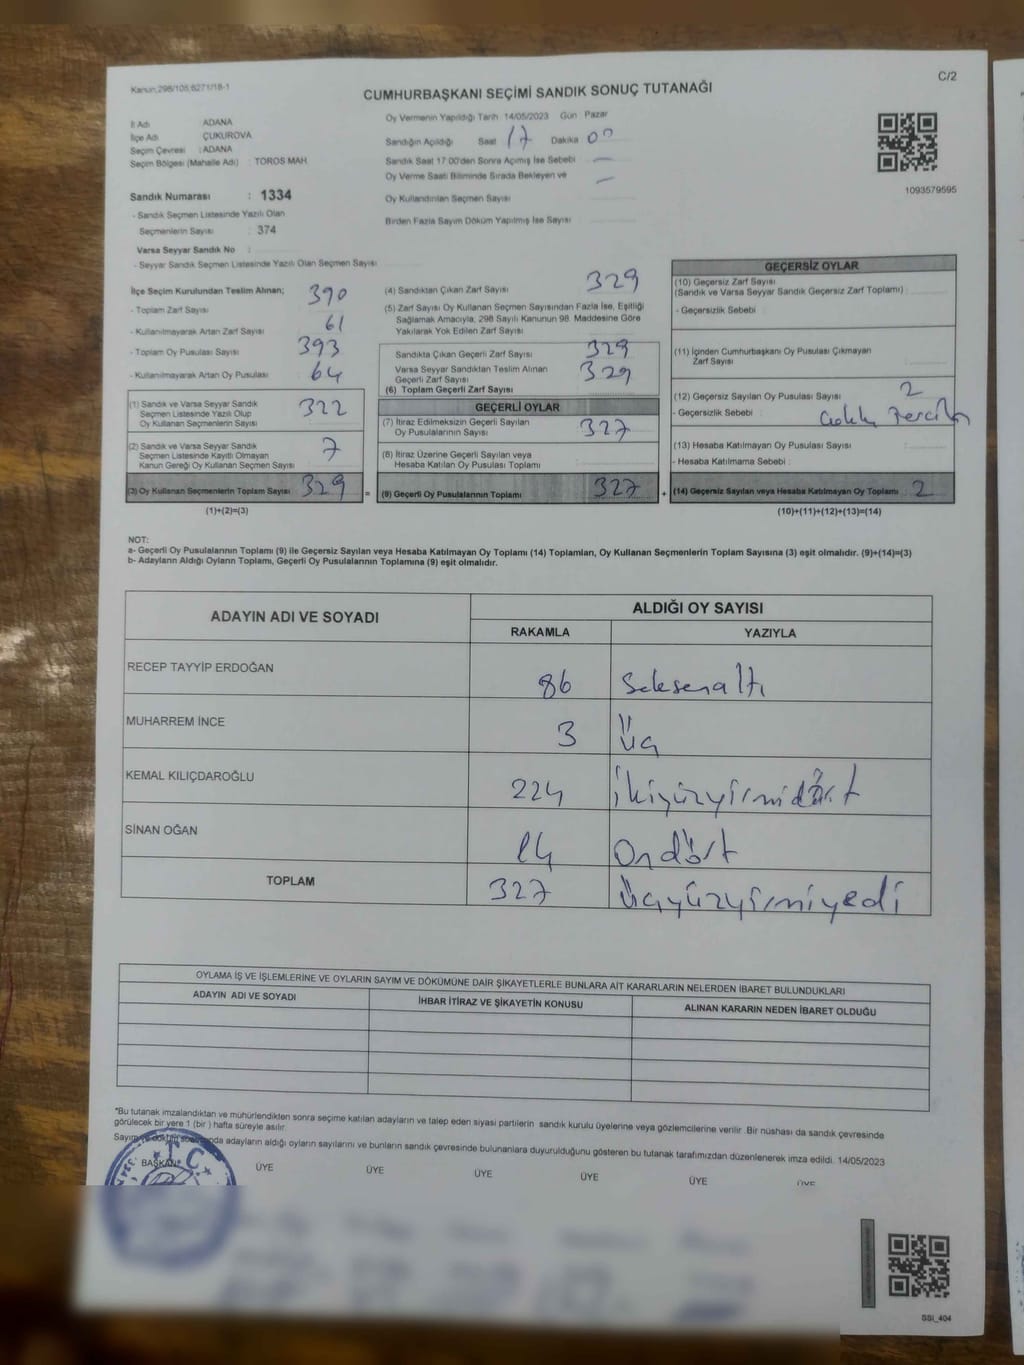 C/2
Kanun:298/105,6271/18-1
CUMHURBAŞKANI SEÇİMİ SANDIK SONUÇ TUTANAĞI
İl Adı : ADANA
İlçe Adı : ÇUKUROVA
Seçim Çevresi : ADANA
Seçim Bölgesi (Mahalle Adı) : TOROS MAH
Sandık Numarası : 1334
- Sandık Seçmen Listesinde Yazılı Olan
Seçmenlerin Sayısı : 374
Varsa Seyyar Sandık No :
- Seyyar Sandık Seçmen Listesinde Yazılı Olan Seçmen Sayısı:
Oy Vermenin Yapıldığı Tarih 14/05/2023 Gün Pazar
Sandığın Açıldığı Saat 17 Dakika 00
Sandık Saat 17:00'den Sonra Açımış İse Sebebi —
Oy Verme Saati Bitiminde Sırada Bekleyen ve —
Oy Kullandırılan Seçmen Sayısı
Birden Fazla Sayım Döküm Yapılmış İse Sayısı
1093579595
İlçe Seçim Kurulundan Teslim Alınan;
- Toplam Zarf Sayısı 390
- Kullanılmayarak Artan Zarf Sayısı 61
- Toplam Oy Pusulası Sayısı 393
- Kullanılmayarak Artan Oy Pusulası 64
(1) Sandık ve Varsa Seyyar Sandık
Seçmen Listesinde Yazılı Olup
Oy Kullanan Seçmenlerin Sayısı 322
(2) Sandık ve Varsa Seyyar Sandık
Seçmen Listesinde Kayıtlı Olmayan
Kanun Gereği Oy Kullanan Seçmen Sayısı 7
(3) Oy Kullanan Seçmenlerin Toplam Sayısı 329 =
(1)+(2)=(3)
(4) Sandıktan Çıkan Zarf Sayısı 329
(5) Zarf Sayısı Oy Kullanan Seçmen Sayısından Fazla İse, Eşitliği
Sağlamak Amacıyla, 298 Sayılı Kanunun 98. Maddesine Göre
Yakılarak Yok Edilen Zarf Sayısı
Sandıkta Çıkan Geçerli Zarf Sayısı 329
Varsa Seyyar Sandıktan Teslim Alınan
Geçerli Zarf Sayısı
(6) Toplam Geçerli Zarf Sayısı 329
GEÇERLİ OYLAR
(7) İtiraz Edilmeksizin Geçerli Sayılan
Oy Pusulalarının Sayısı 327
(8) İtiraz Üzerine Geçerli Sayılan veya
Hesaba Katılan Oy Pusulası Toplamı
(9) Geçerli Oy Pusulalarının Toplamı 327 +
GEÇERSİZ OYLAR
(10) Geçersiz Zarf Sayısı
(Sandık ve Varsa Seyyar Sandık Geçersiz Zarf Toplamı) :
- Geçersizlik Sebebi :
(11) İçinden Cumhurbaşkanı Oy Pusulası Çıkmayan
Zarf Sayısı
(12) Geçersiz Sayılan Oy Pusulası Sayısı 2
- Geçersizlik Sebebi :
(13) Hesaba Katılmayan Oy Pusulası Sayısı
- Hesaba Katılmama Sebebi :
(14) Geçersiz Sayılan veya Hesaba Katılmayan Oy Toplamı 2
(10)+(11)+(12)+(13)=(14)
NOT:
a- Geçerli Oy Pusulalarının Toplamı (9) ile Geçersiz Sayılan veya Hesaba Katılmayan Oy Toplamı (14) Toplamları, Oy Kullanan Seçmenlerin Toplam Sayısına (3) eşit olmalıdır. (9)+(14)=(3)
b- Adayların Aldığı Oyların Toplamı, Geçerli Oy Pusulalarının Toplamına (9) eşit olmalıdır.
ADAYIN ADI VE SOYADI
ALDIĞI OY SAYISI
RAKAMLA YAZIYLA
RECEP TAYYİP ERDOĞAN 86 Seksenaltı
MUHARREM İNCE 3 Üç
KEMAL KILIÇDAROĞLU 224 İkiyüzyirmidört
SİNAN OĞAN 14 Ondört
TOPLAM 327 Üçyüzyirmiyedi
OYLAMA İŞ VE İŞLEMLERİNE VE OYLARIN SAYIM VE DÖKÜMÜNE DAİR ŞİKAYETLERLE BUNLARA AİT KARARLARIN NELERDEN İBARET BULUNDUKLARI
ADAYIN ADI VE SOYADI
İHBAR İTİRAZ VE ŞİKAYETİN KONUSU
ALINAN KARARIN NEDEN İBARET OLDUĞU
*Bu tutanak imzalandıktan ve mühürlendikten sonra seçime katılan adayların ve talep eden siyasi partilerin sandık kurulu üyelerine veya gözlemcilerine verilir. Bir nüshası da sandık çevresinde
görülecek bir yere 1 (bir ) hafta süreyle asılır.
Sayım ve döküm sonunda adayların aldığı oyların sayılarını ve bunların sandık çevresinde bulunanlara duyurulduğunu gösteren bu tutanak tarafımızdan düzenlenerek imza edildi. 14/05/2023
BAŞKAN ÜYE ÜYE ÜYE ÜYE ÜYE ÜYE
T.C.
SSİ_404